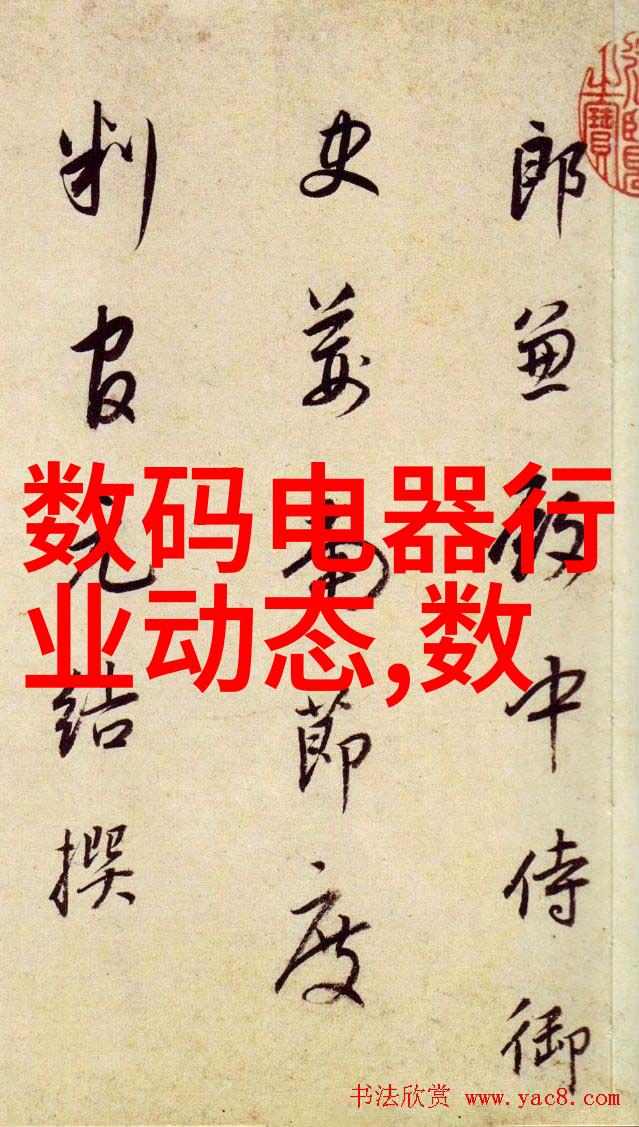 郎兼殿中侍御
史荊南節度
判官元結撰
数码电器行
业动态,数
书法欣赏 www.yac8.com